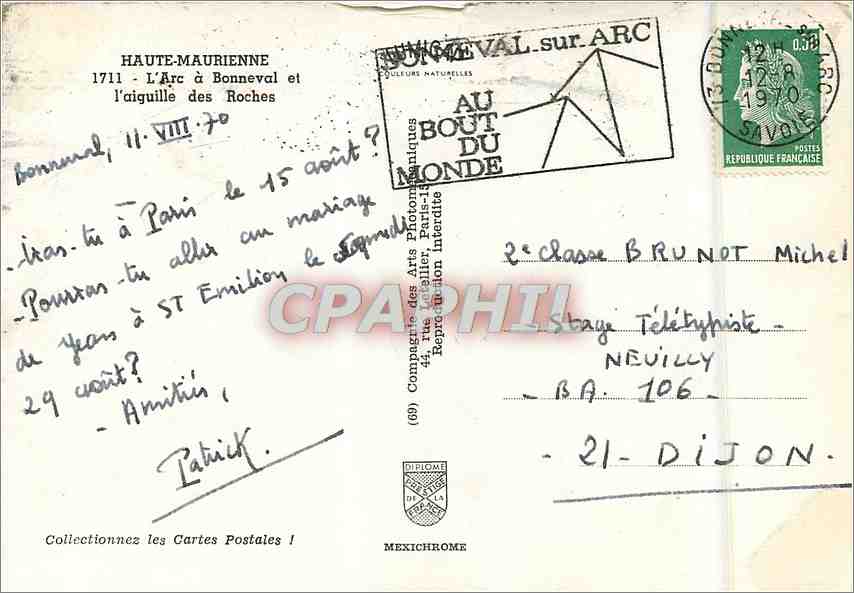 HAUTE-MAURIENNE
1711 - L'Arc à Bonneval et
l'aiguille des Roches
Bonneval, 11. VIII. 70
- Iras-tu à Paris le 15 août?
- Pourras-tu aller au mariage
de Jean à ST Emilion le samedi
29 août?
- Amitiés,
Patrick.
Collectionnez les Cartes Postales !
COULEURS NATURELLES
BONNEVAL sur ARC
AU
BOUT
DU
MONDE
(69) Compagnie des Arts Photomécaniques
44, rue Letellier, Paris-15
Reproduction interdite
DIPLOME
PRESTIGE
DE LA
FRANCE
MEXICHROME
73 BONNEVAL-sur-ARC
12 H
12-8
1970
SAVOIE
POSTES
REPUBLIQUE FRANÇAISE
2e classe BRUNOT Michel
- Stage Télétypiste -
NEUILLY
- BA. 106 -
- 21 - DIJON.
CPAPHIL